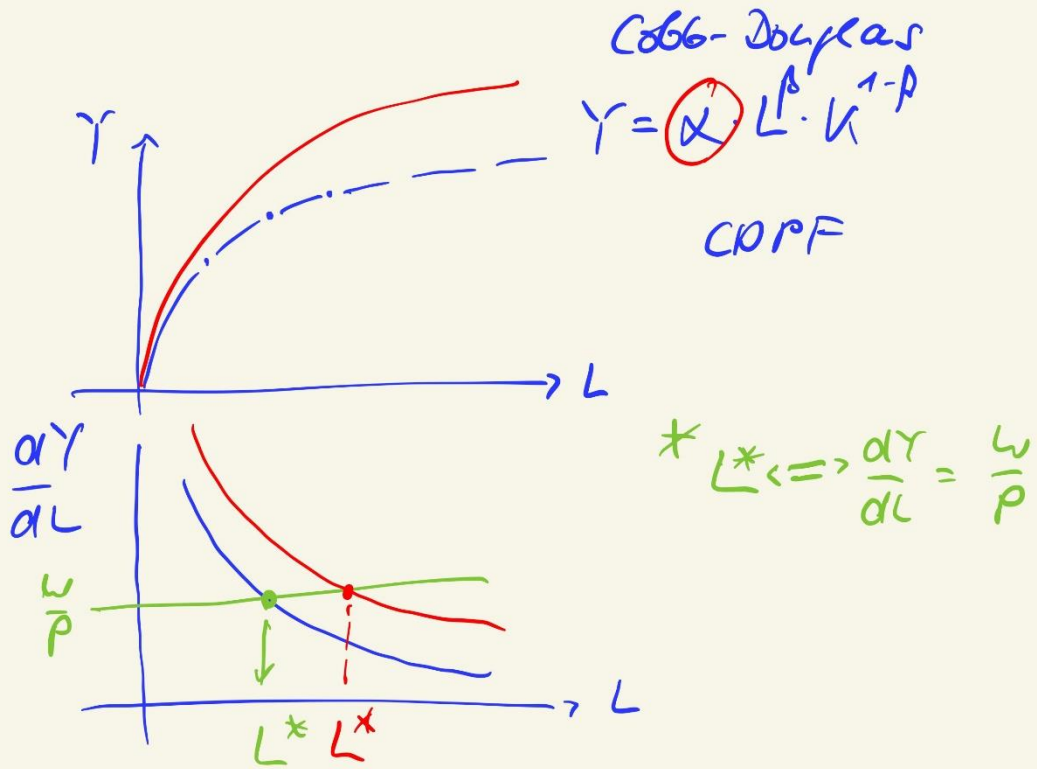 Cobb-Douglas
Y = α · L^β · K^1-β
CDPF
Y
L
dY/dL
* L* <=> dY/dL = w/P
w/P
L
L* L*